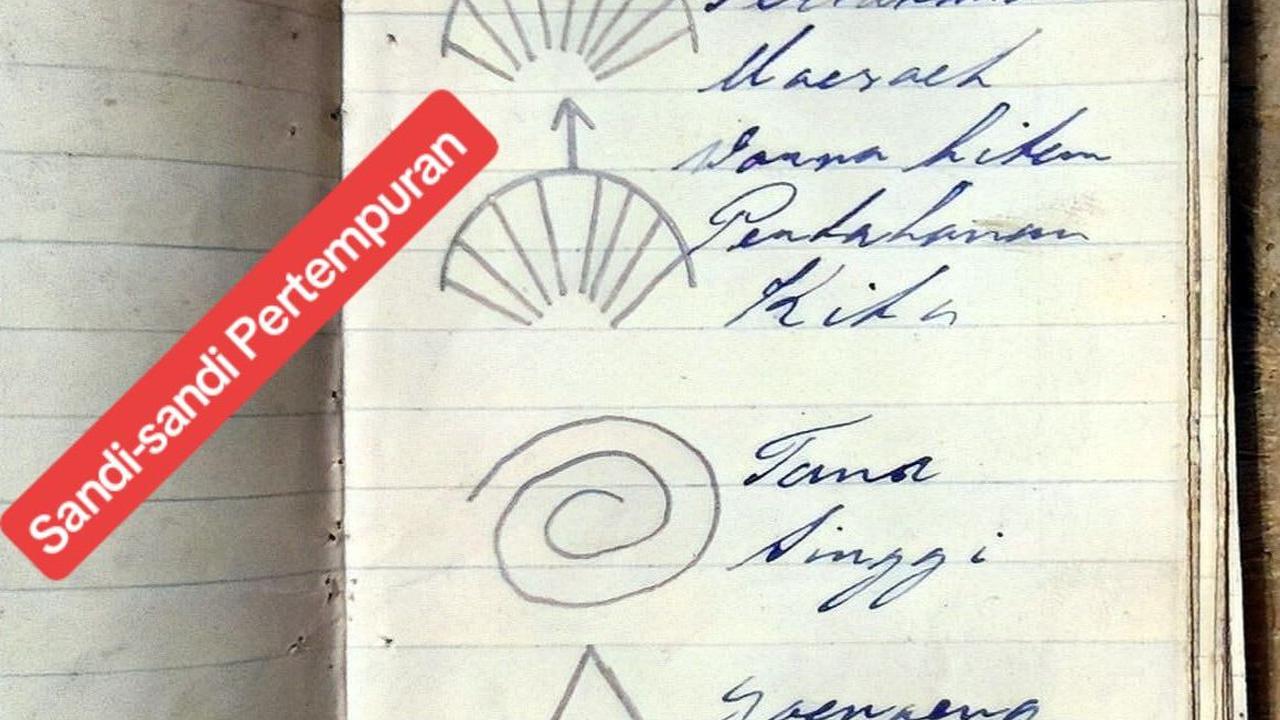 Moesoeh
Warna hitam
Pertahanan
Kita
Tana
Tinggi
Goenoeng
Sandi-sandi Pertempuran